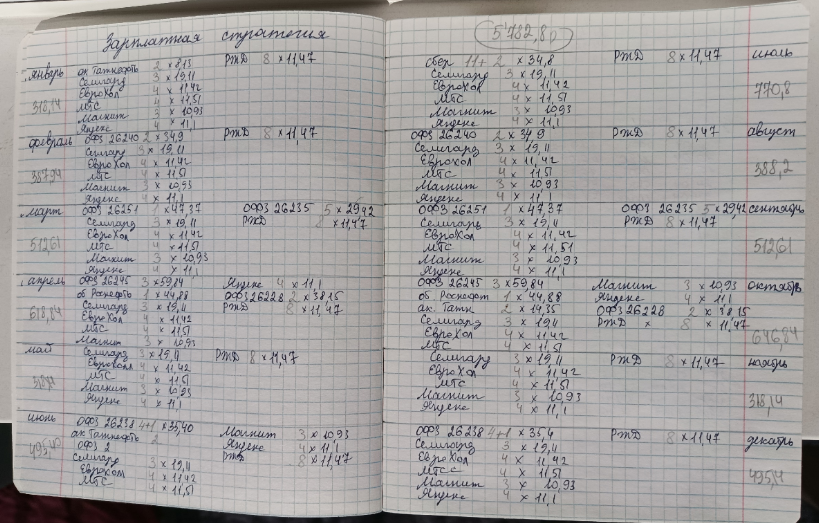 Зарплатная стратегия
январь ак Татнефть 2 × 8,13 РЖД 8 × 11,47
Селигдар 3 × 19,11
318,14 ЕвроХол 4 × 11,42
МТС 4 × 11,51
Магнит 3 × 10,93
Яндекс 4 × 11,1
февраль ОФЗ 26240 2 × 34,9 РЖД 8 × 11,47
Селигдар 3 × 19,11
387,94 ЕвроХол 4 × 11,42
МТС 4 × 11,51
Магнит 3 × 10,93
Яндекс 4 × 11,1
март ОФЗ 26251 1 × 47,37 ОФЗ 26235 5 × 29,42
Селигдар 3 × 19,11 РЖД 8 × 11,47
512,61 ЕвроХол 4 × 11,42
МТС 4 × 11,51
Магнит 3 × 10,93
Яндекс 4 × 11,1
апрель ОФЗ 26245 3 × 59,84 Яндекс 4 × 11,1
об Роснефть 1 × 44,88 ОФЗ 26228 2 × 38,15
618,84 Селигдар 3 × 19,11 РЖД 8 × 11,47
ЕвроХол 4 × 11,42
МТС 4 × 11,51
Магнит 3 × 10,93
май Селигдар 3 × 19,11 РЖД 8 × 11,47
ЕвроХол 4 × 11,42
318,14 МТС 4 × 11,51
Магнит 3 × 10,93
Яндекс 4 × 11,1
июнь ОФЗ 26238 4+1 × 35,40 Магнит 3 × 10,93
ак Татнефть 2 Яндекс 4 × 11,1
495,40 ОФЗ 2 РЖД 8 × 11,47
Селигдар 3 × 19,11
ЕвроХол 4 × 11,42
МТС 4 × 11,51
5782,8р
сбер 11+2 × 34,8 РЖД 8 × 11,47 июль
Селигдар 3 × 19,11
ЕвроХол 4 × 11,42 770,8
МТС 4 × 11,51
Магнит 3 × 10,93
Яндекс 4 × 11,1
ОФЗ 26240 2 × 34,9 РЖД 8 × 11,47 август
Селигдар 3 × 19,11
ЕвроХол 4 × 11,42 388,2
МТС 4 × 11,51
Магнит 3 × 10,93
Яндекс 4 × 11,1
ОФЗ 26251 1 × 47,37 ОФЗ 26235 5 × 29,42 сентябрь
Селигдар 3 × 19,11 РЖД 8 × 11,47
ЕвроХол 4 × 11,42 512,61
МТС 4 × 11,51
Магнит 3 × 10,93
Яндекс 4 × 11,1
ОФЗ 26245 3 × 59,84 Магнит 3 × 10,93 октябрь
об Роснефт 1 × 44,88 Яндекс 4 × 11,1
ак. Татн 2 × 14,35 ОФЗ 26228 2 × 38,15
Селигдар 3 × 19,11 РЖД × 8 × 11,47 646,84
ЕвроХол 4 × 11,42
МТС 4 × 11,51
Селигдар 3 × 19,11 РЖД 8 × 11,47 ноябрь
ЕвроХол 4 × 11,42
МТС 4 × 11,51 318,14
Магнит 3 × 10,93
Яндекс 4 × 11,1
ОФЗ 26238 4+1 × 35,4 РЖД 8 × 11,47 декабрь
Селигдар 3 × 19,11
ЕвроХол 4 × 11,42 495,4
МТС 4 × 11,51
Магнит 3 × 10,93
Яндекс 4 × 11,1